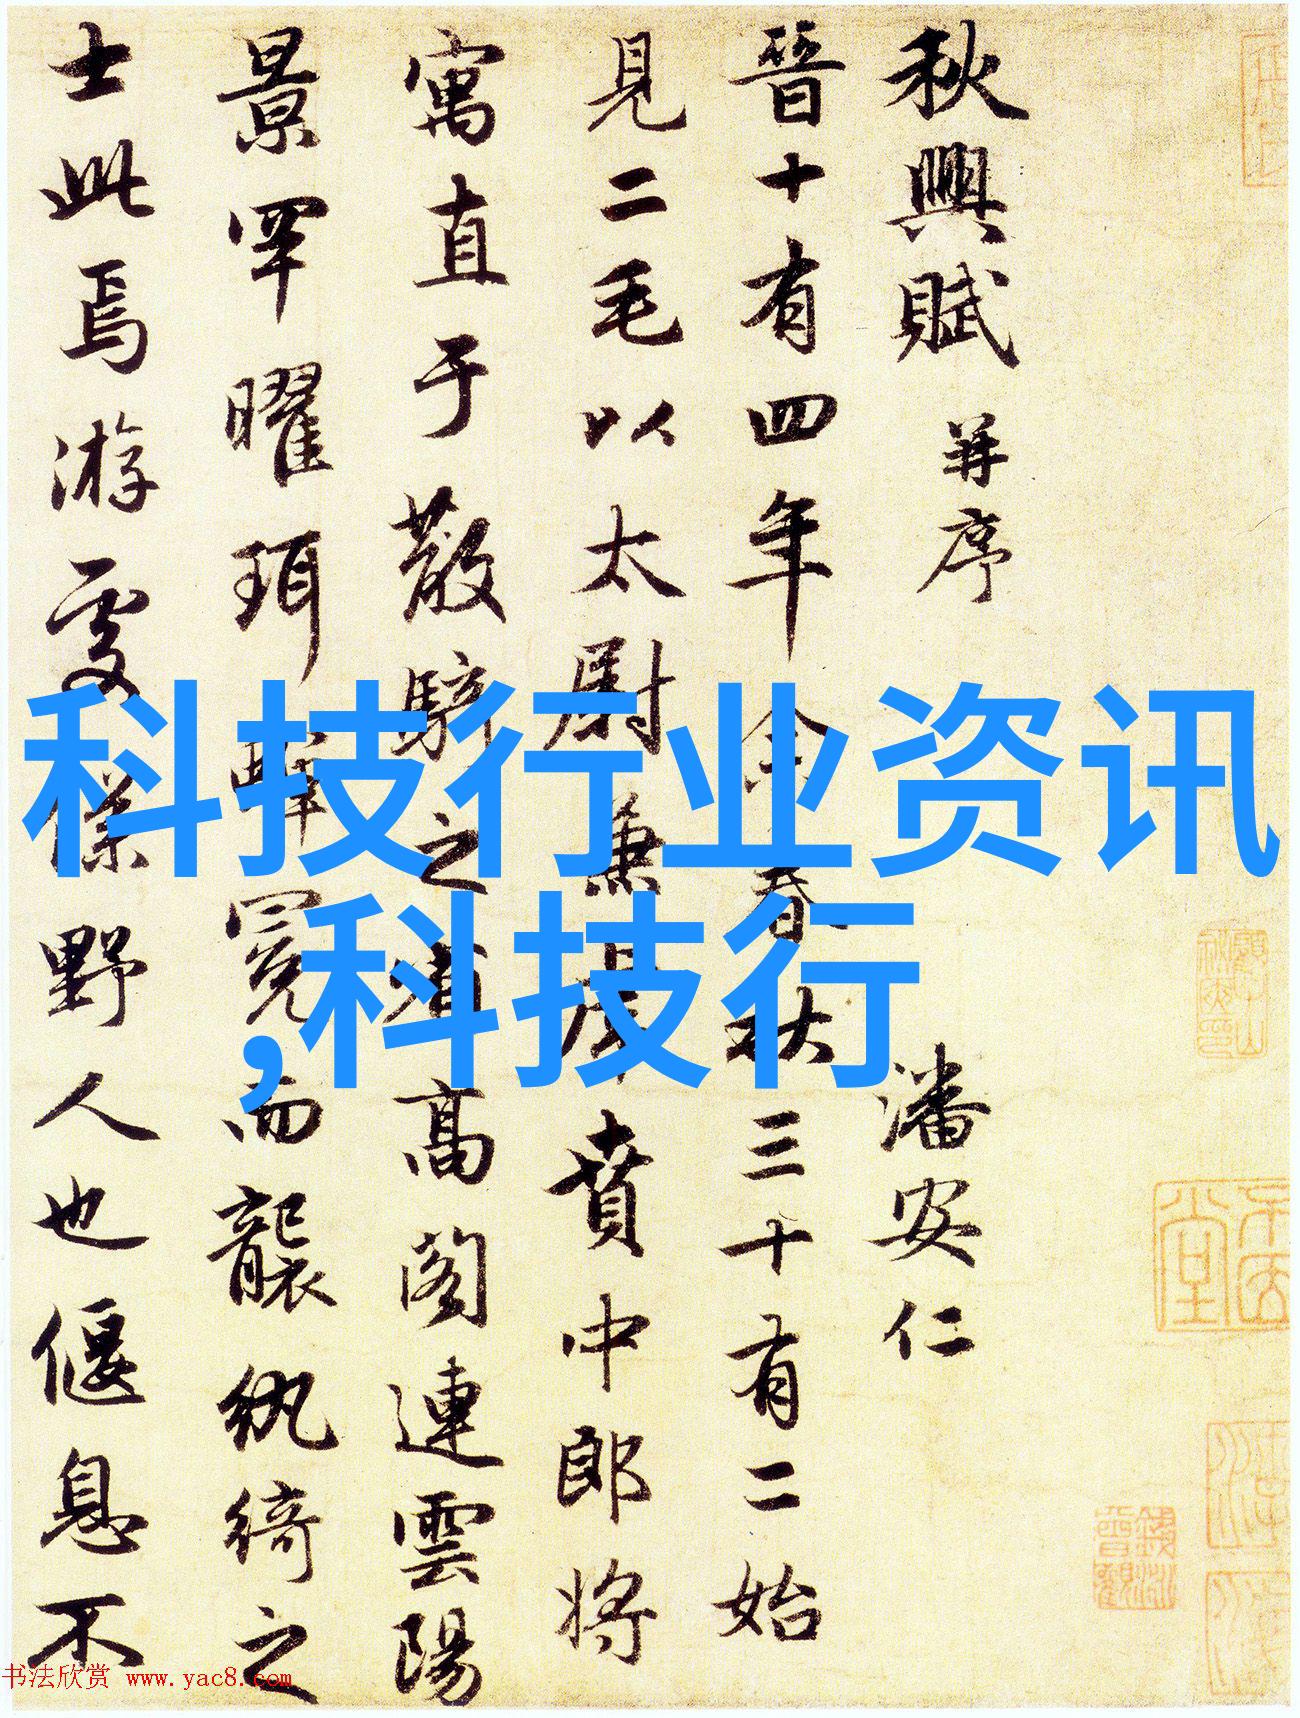 秋興賦 并序
潘安仁
晉十有四年余春秋三十有二始
見二毛以太尉兼虎賁中郎將
寓直于散騎之省高閣連雲陽
景罕曜珥蟬冕而襲紈綺之
士此焉游處僕野人也偃息不
科技行业资讯
,科技行
书法欣赏 www.yac8.com